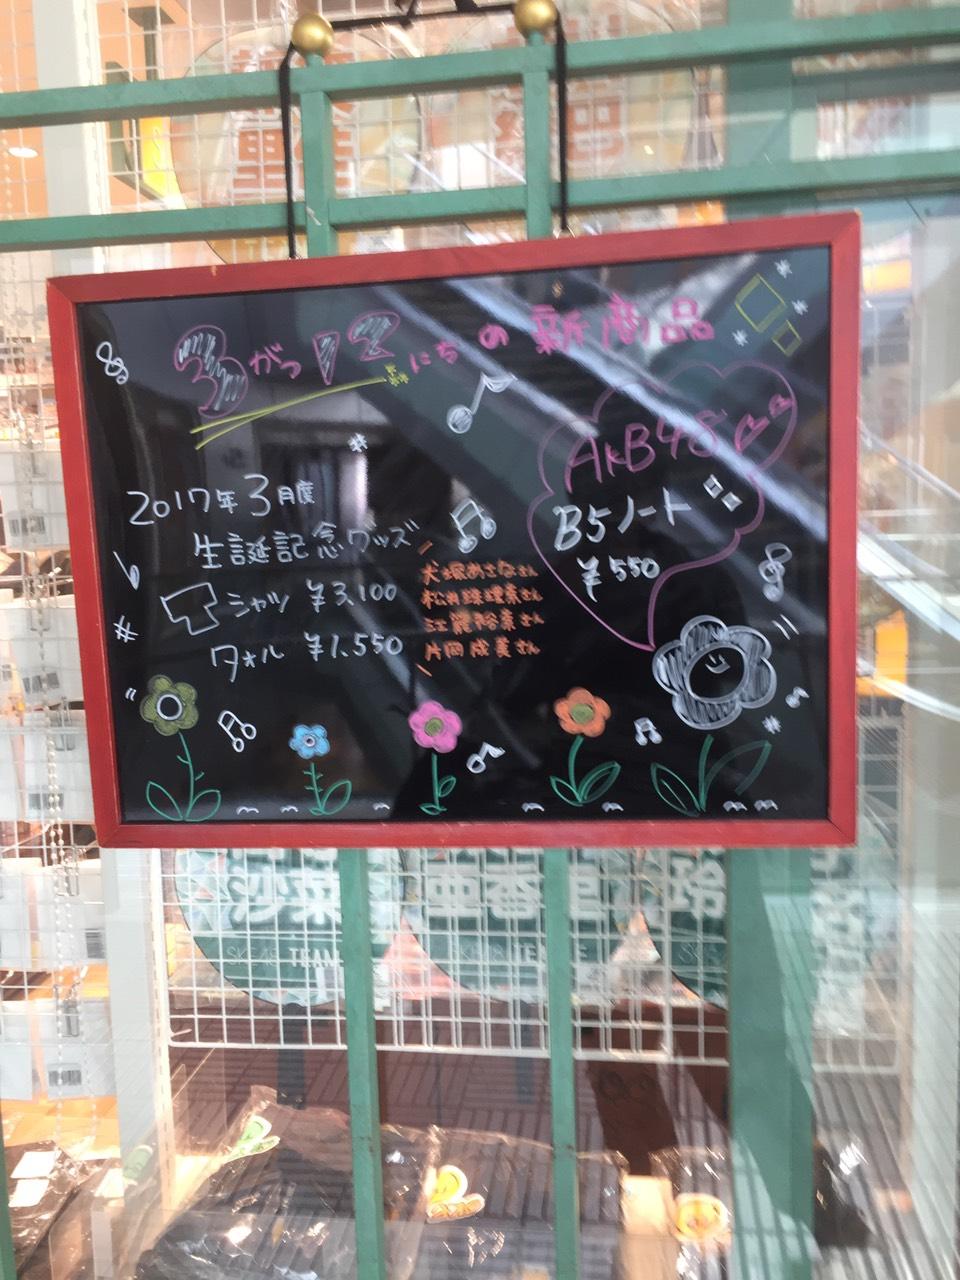 3がつ12にちの新商品
AKB48
B5ノート
¥550
2017年3月度
生誕記念グッズ
シャツ ¥3,100
タオル ¥1,550
犬塚あさなさん
松井珠理奈さん
江籠裕奈さん
片岡成美さん
沙菜
亜香里
玲
SKE48 TEAM
SKE48 TEAM E